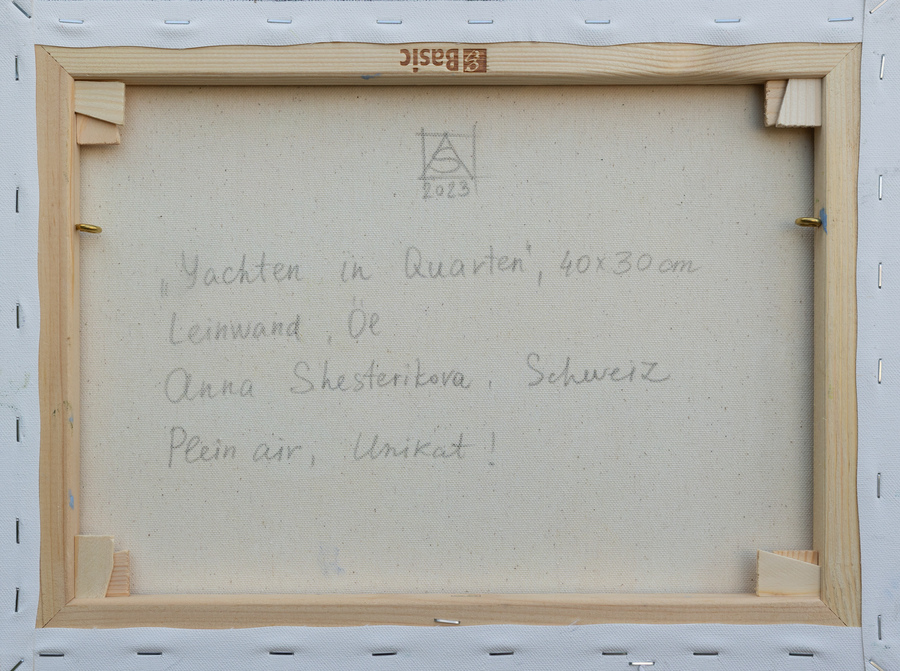 Basic
AS
2023
„Yachten in Quarten", 40x30 cm
Leinwand, Öl
Anna Shesterikova. Schweiz
Plein air, Unikat!